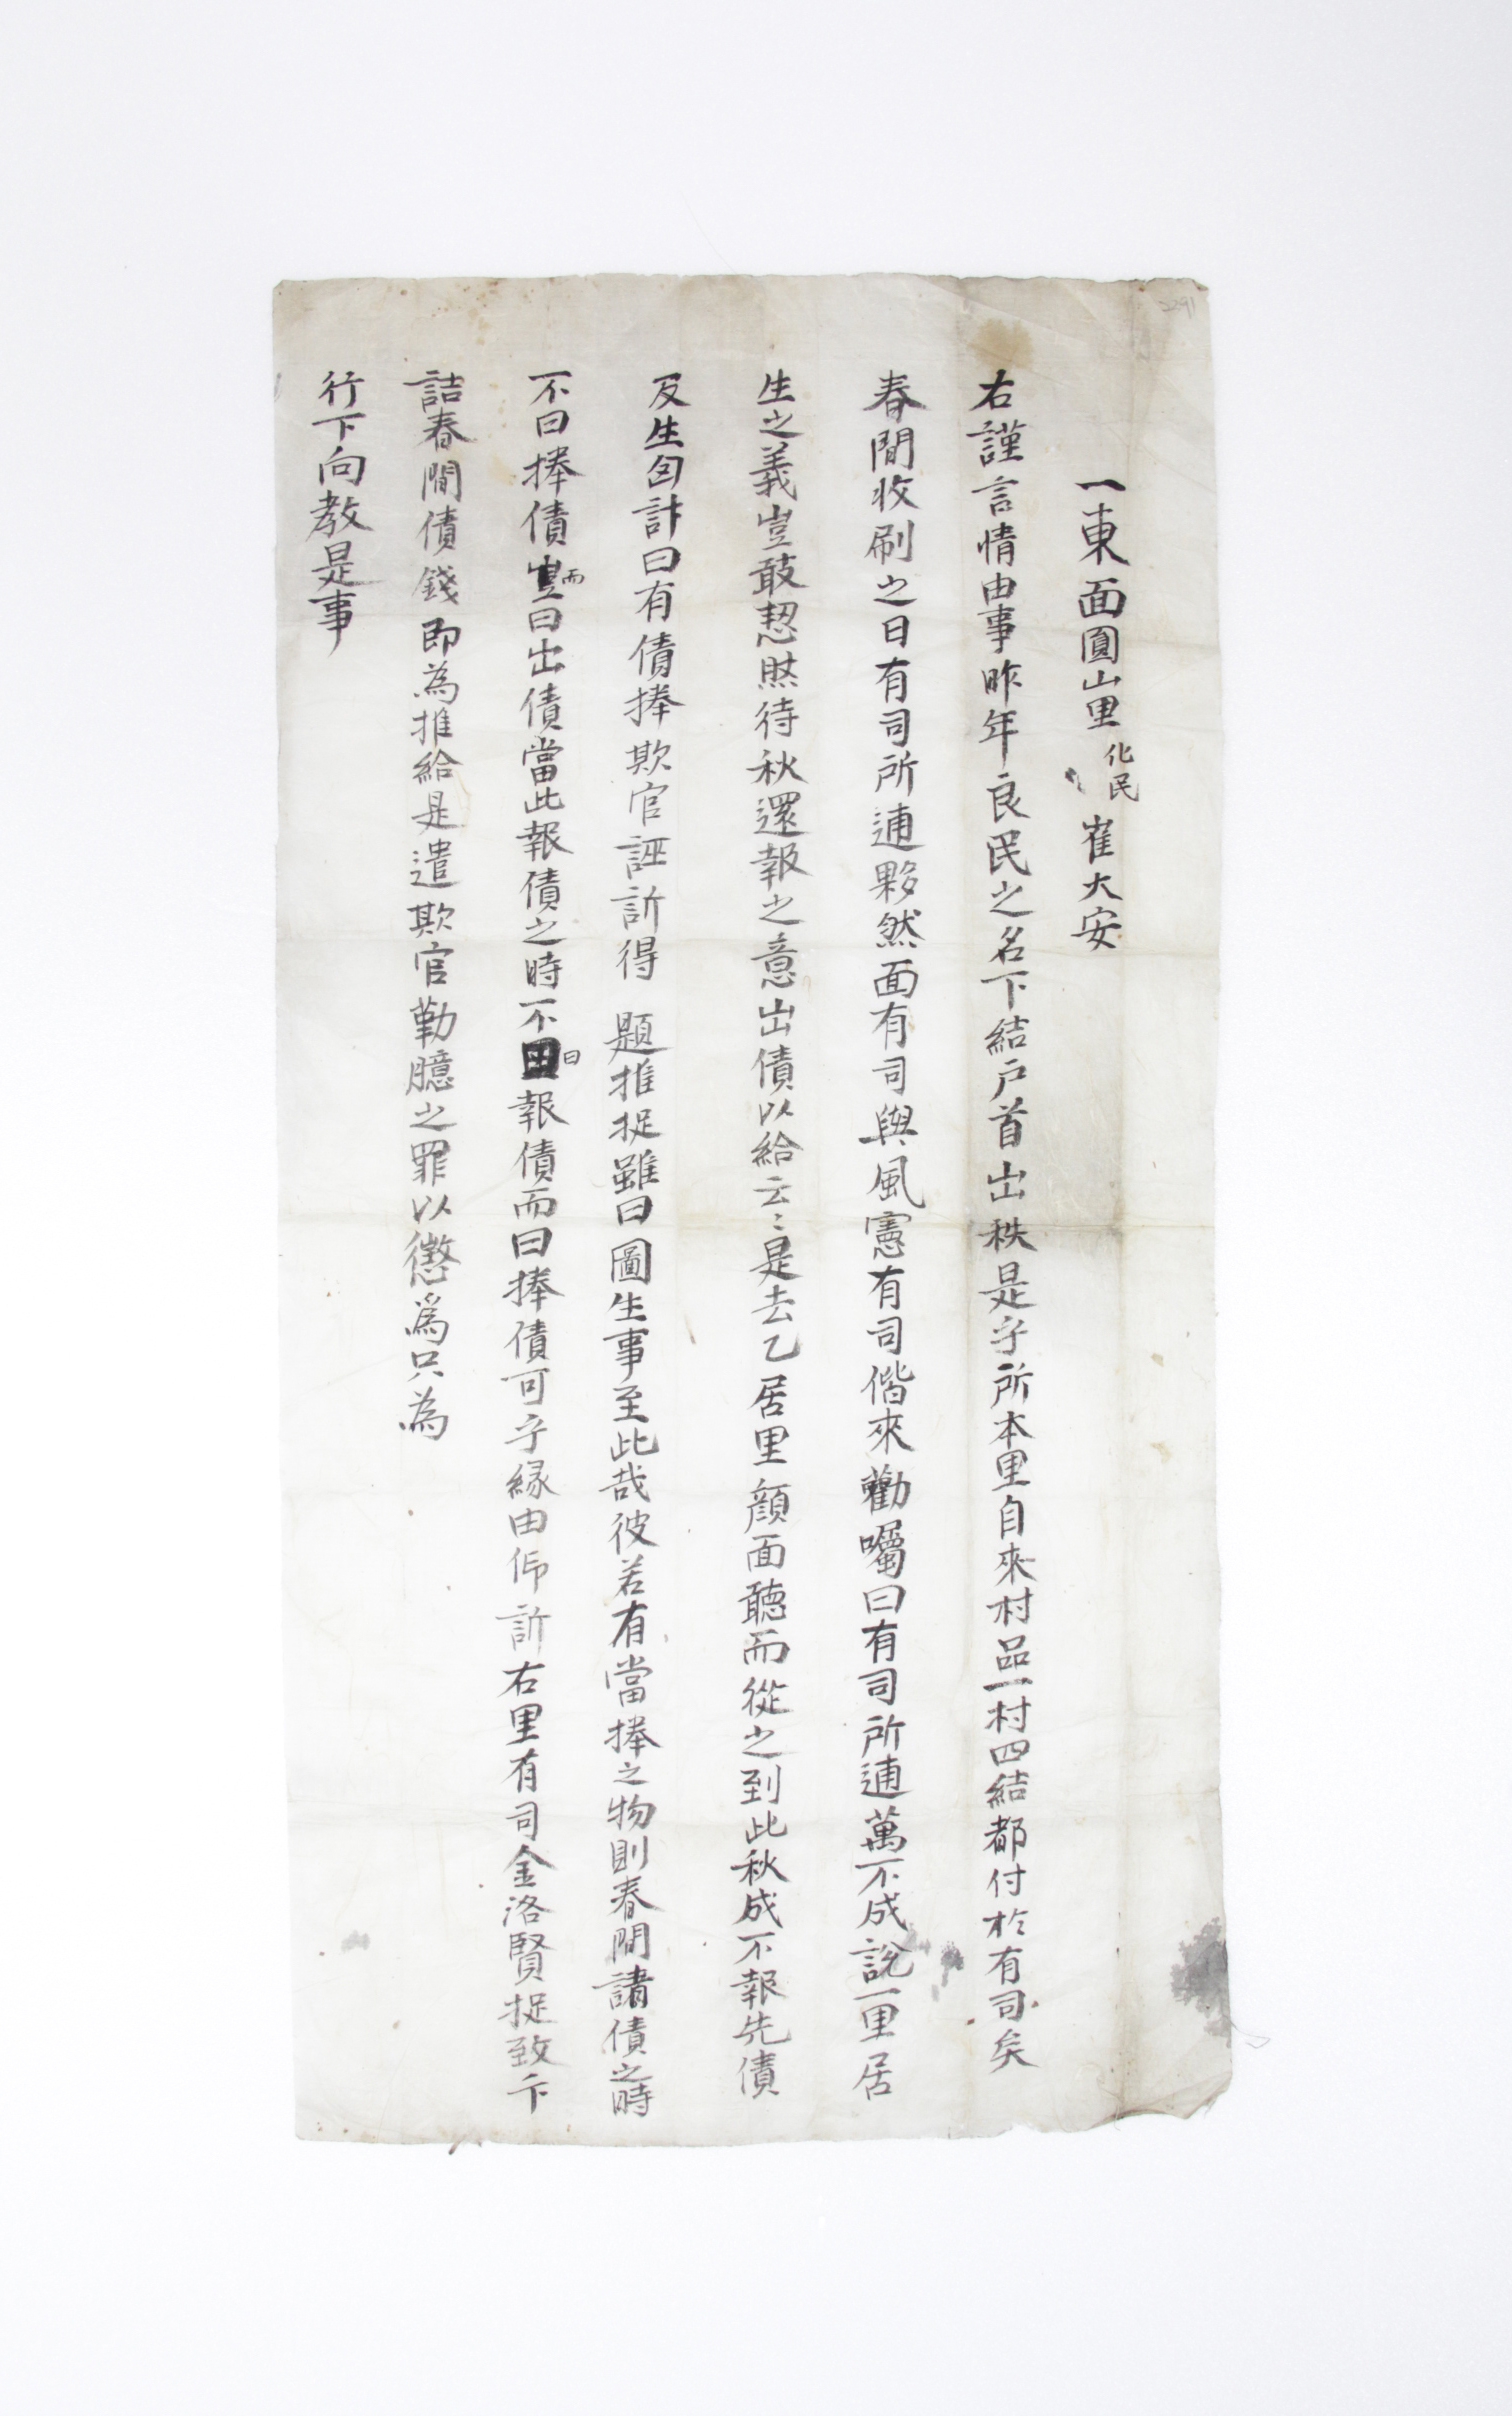 一東面圓山里化民崔大安
右謹言情由事昨年良民之名下結戶首出秩是乎所本里自來村品一村四結都付於有司矣
春間收刷之日有司所逋夥然面有司與風憲有司偕來勸囑曰有司所逋萬不成說一里居
生之義豈敢恝然待秋還報之意出債以給云〻是去乙居里顔面聽而從之到此秋成不報先債
反生匃計曰有債捧欺官誣訴得 題推捉雖曰圖生事至此哉彼若有當捧之物則春間請債之時
不曰捧債而曰出債當此報債之時不曰報債而曰捧債可乎緣由仰訴右里有司金洛賢捉致卞
詰春間債錢即為推給是遣欺官勒臆之罪以懲爲只為
行下向教是事
2291